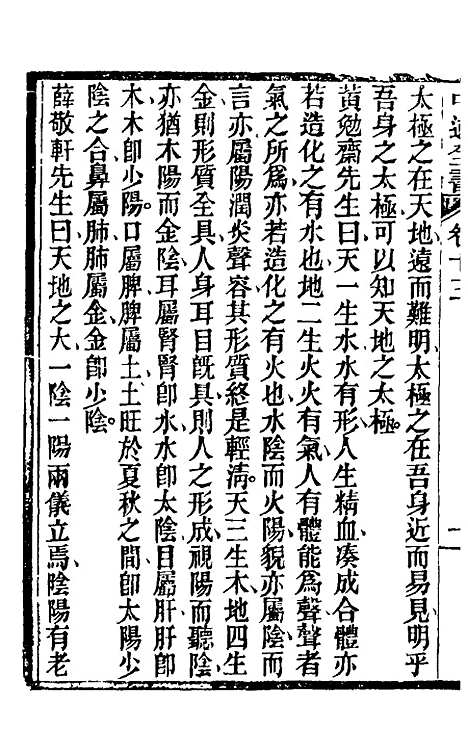 太極之在天地遠而難明太極之在吾身近而易見明乎
吾身之太極可以知天地之太極。
黃勉齋先生曰天一生水水有形人生精血湊成合體亦
若造化之有水也地二生火火有氣人有體能爲聲聲者
氣之所爲亦若造化之有火也水陰而火陽貌亦屬陰而
言亦屬陽潤炎聲容其形質終是輕淸。天三生木地四生
金則形質全具人身耳目旣具則人之形成視陽而聽陰
亦猶木陽而金陰耳屬腎腎卽水水卽太陰目屬肝肝卽
木木卽少陽。口屬脾脾屬土土旺於夏秋之間卽太陽少
陰之合鼻屬肺肺屬金金卽少陰。
薛敬軒先生曰天地之大一陰一陽兩儀立焉陰陽有老